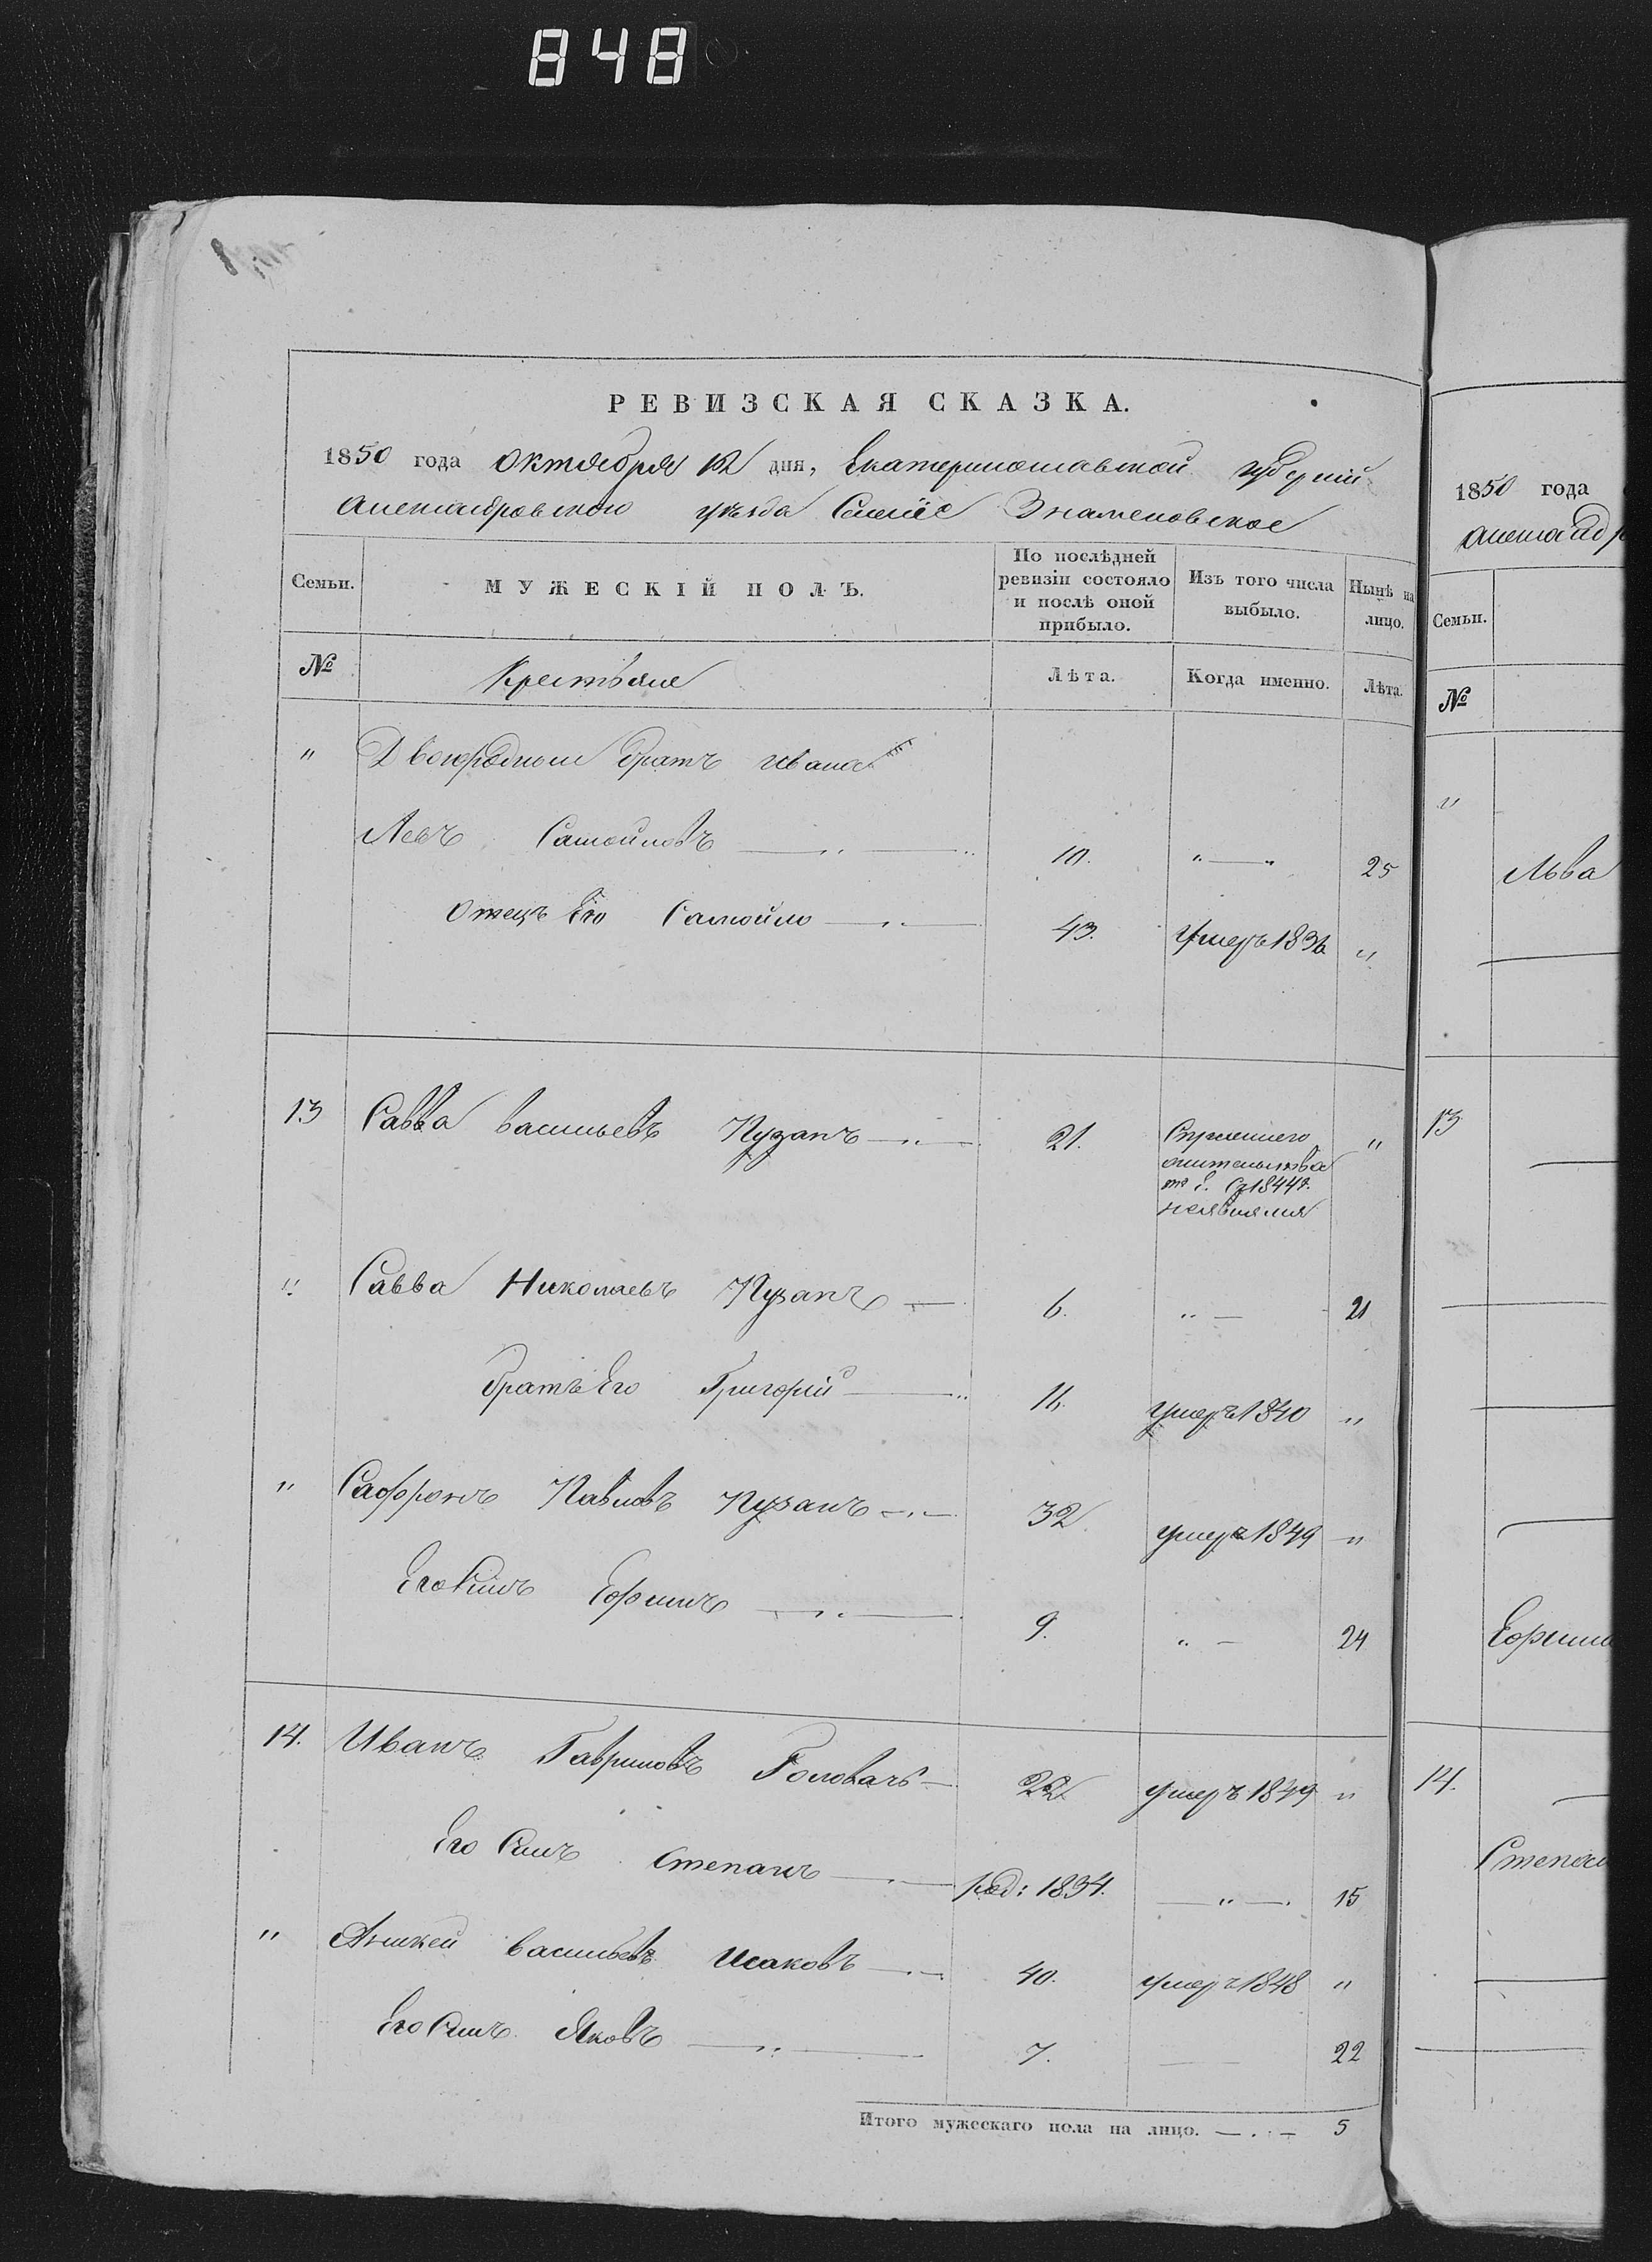 848
РЕВИЗСКАЯ СКАЗКА.
1850 года октября 12 дня, Екатеринославской губернiи
Александровского уѣзда Селенiе Знаменовское
Семьи. МУЖЕСКIЙ ПОЛЪ. По послѣдней ревизiи состояло и послѣ оной прибыло. Изъ того числа выбыло. Нынѣ на лицо.
№ Крестьяне Лѣта. Когда именно. Лѣта.
" Двоюродный братъ Ивана
Левъ Самойловъ — " — 10. " — " 25
Отецъ Его Самойло — " — 43. Умеръ 1836 "
13 Савва Васильевъ Пузанъ — " — 21. "
жительства
1844
неявился
" Савва Николаевъ Пузанъ — 6. " — 21
братъ Его Григорiй — " 11. умеръ 1840 "
" Сафронъ Павловъ Пузанъ — " — 32. умеръ 1849 "
Его Сынъ Ефимъ — " — 9. " — 24
14. Иванъ Гавриловъ Головачъ — 22 умеръ 1849 "
Его Сынъ Степанъ — " — род: 1834. — " — 15
" Васильевъ Исаковъ — " — 40. умеръ 1848 "
Его Сынъ Яковъ — " — 7. — 22
Итого мужескаго пола на лицо. — " — 5
1850 года
Александр
Семьи.
№
"
Льва
13
Ефима
14.
Степан